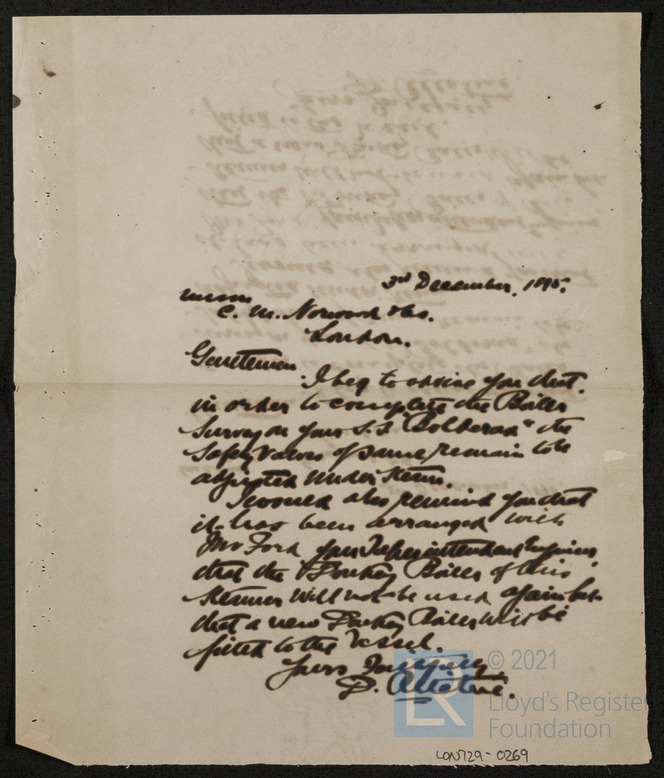 3rd December, 1895.
Messrs
C. M. Norwood & Co.
London.
Gentlemen
I beg to advise you that
in order to complete the Boiler
Survey on your S.S. "Bolderaa" the
Safety Valves of same remain to be
adjusted under steam.
I would also remind you that
it has been arranged with
Mr Ford your Superintendent Engineer,
that the Donkey Boiler of this
Steamer will not be used again but
that a new Donkey Boiler will be
fitted to the Vessel.
Yours faithfully,
P.
© 2021
Lloyd's Register
Foundation
LR
LON729-0269